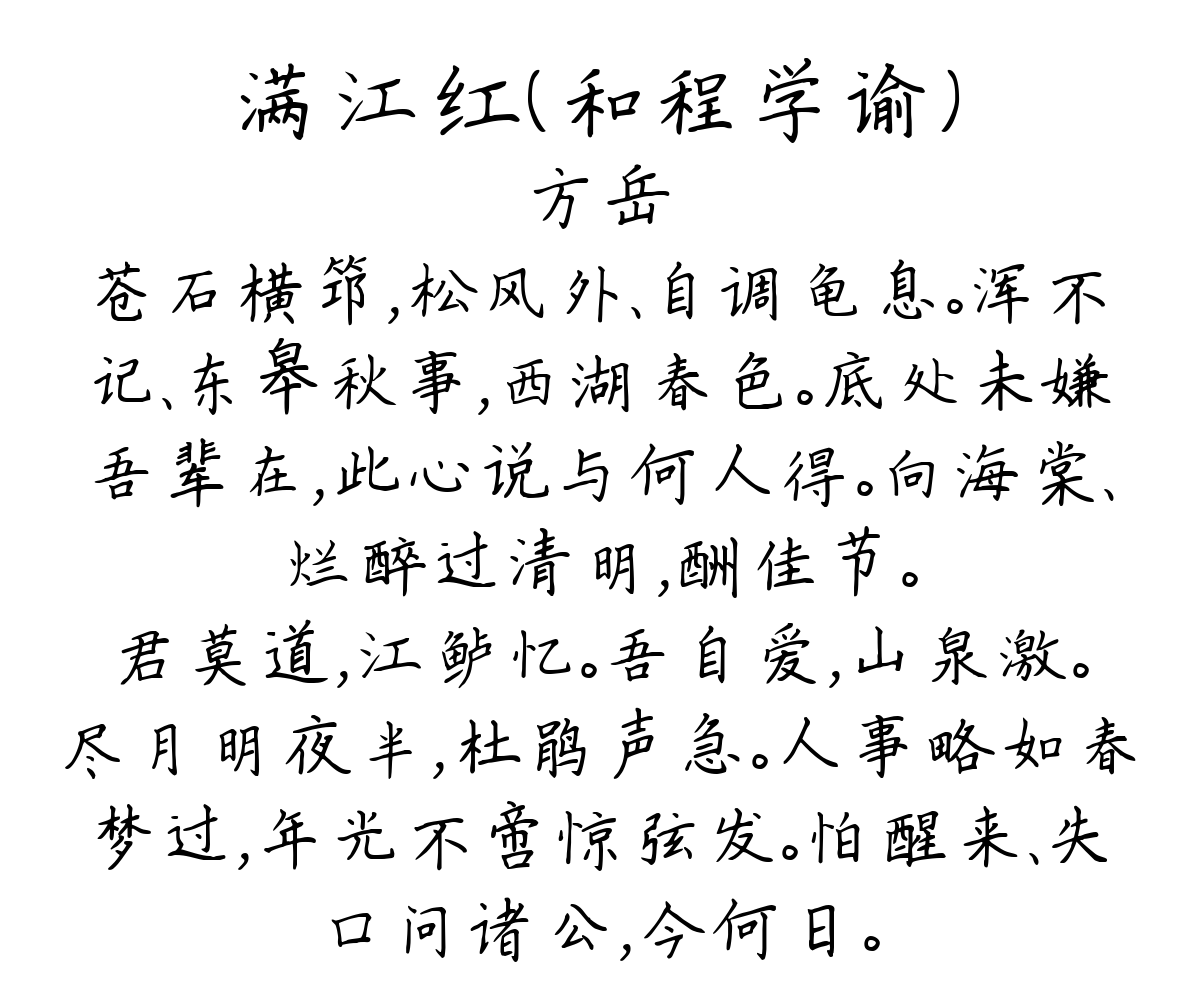 满江红(和程学谕)
方岳
苍石横筇,松风外、自调龟息。浑不
记、东皋秋事,西湖春色。底处未嫌
吾辈在,此心说与何人得。向海棠、
烂醉过清明,酬佳节。
君莫道,江鲈忆。吾自爱,山泉激。
尽月明夜半,杜鹃声急。人事略如春
梦过,年光不啻惊弦发。怕醒来、失
口问诸公,今何日。